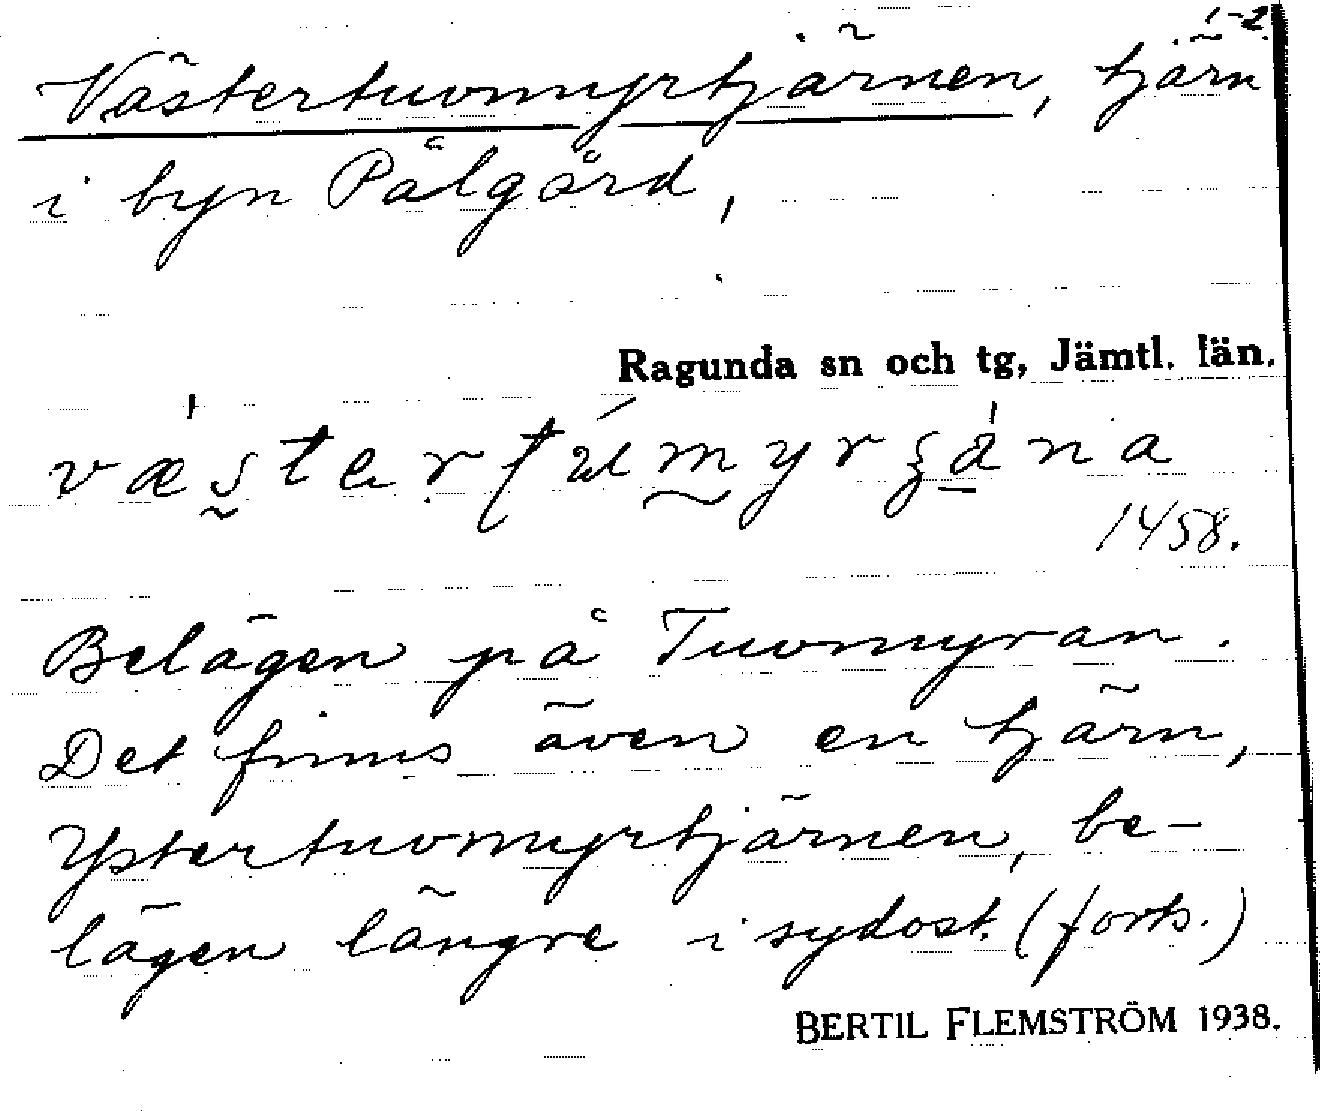 1-2.
Västertuvmyrtjärnen, tjärn
i byn Pålgård,
Ragunda sn och tg, Jämtl. län.
1458.
Belägen på Tuvmyran.
Det finns även en tjärn,
Ystertuvmyrtjärnen, be-
lägen längre i sydost. (forts.)
BERTIL FLEMSTRÖM 1938.